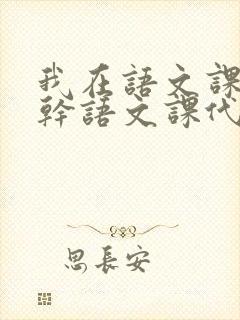 我在語文課
幹語文課代
思長安